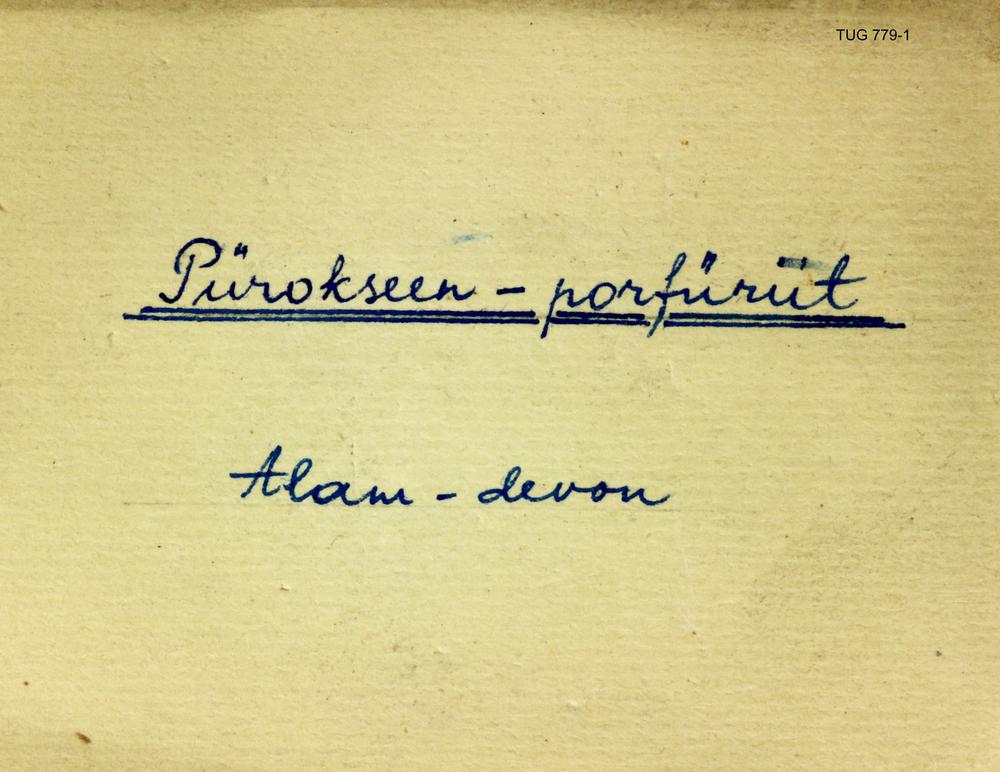 TUG 779-1
Pürokseen - porfüriit
Alam - devon